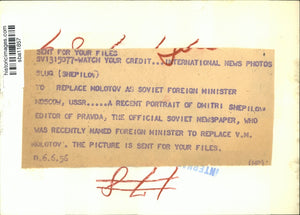 SENT FOR YOUR FILES
SV1315077-WATCH YOUR CREDIT...INTERNATIONAL NEWS PHOTOS
SLUG (SHEPILOV)
TO REPLACE MOLOTOV AS SOVIET FOREIGN MINISTER
MOSCOW, USSR.....A RECENT PORTRAIT OF DMITRI SHEPILOV
EDITOR OF PRAVDA, THE OFFICIAL SOVIET NEWSPAPER, WHO
WAS RECENTLY NAMED FOREIGN MINISTER TO REPLACE V.M.
MOLOTOV. THE PICTURE IS SENT FOR YOUR FILES.
D.6.6.56
historicimages.com